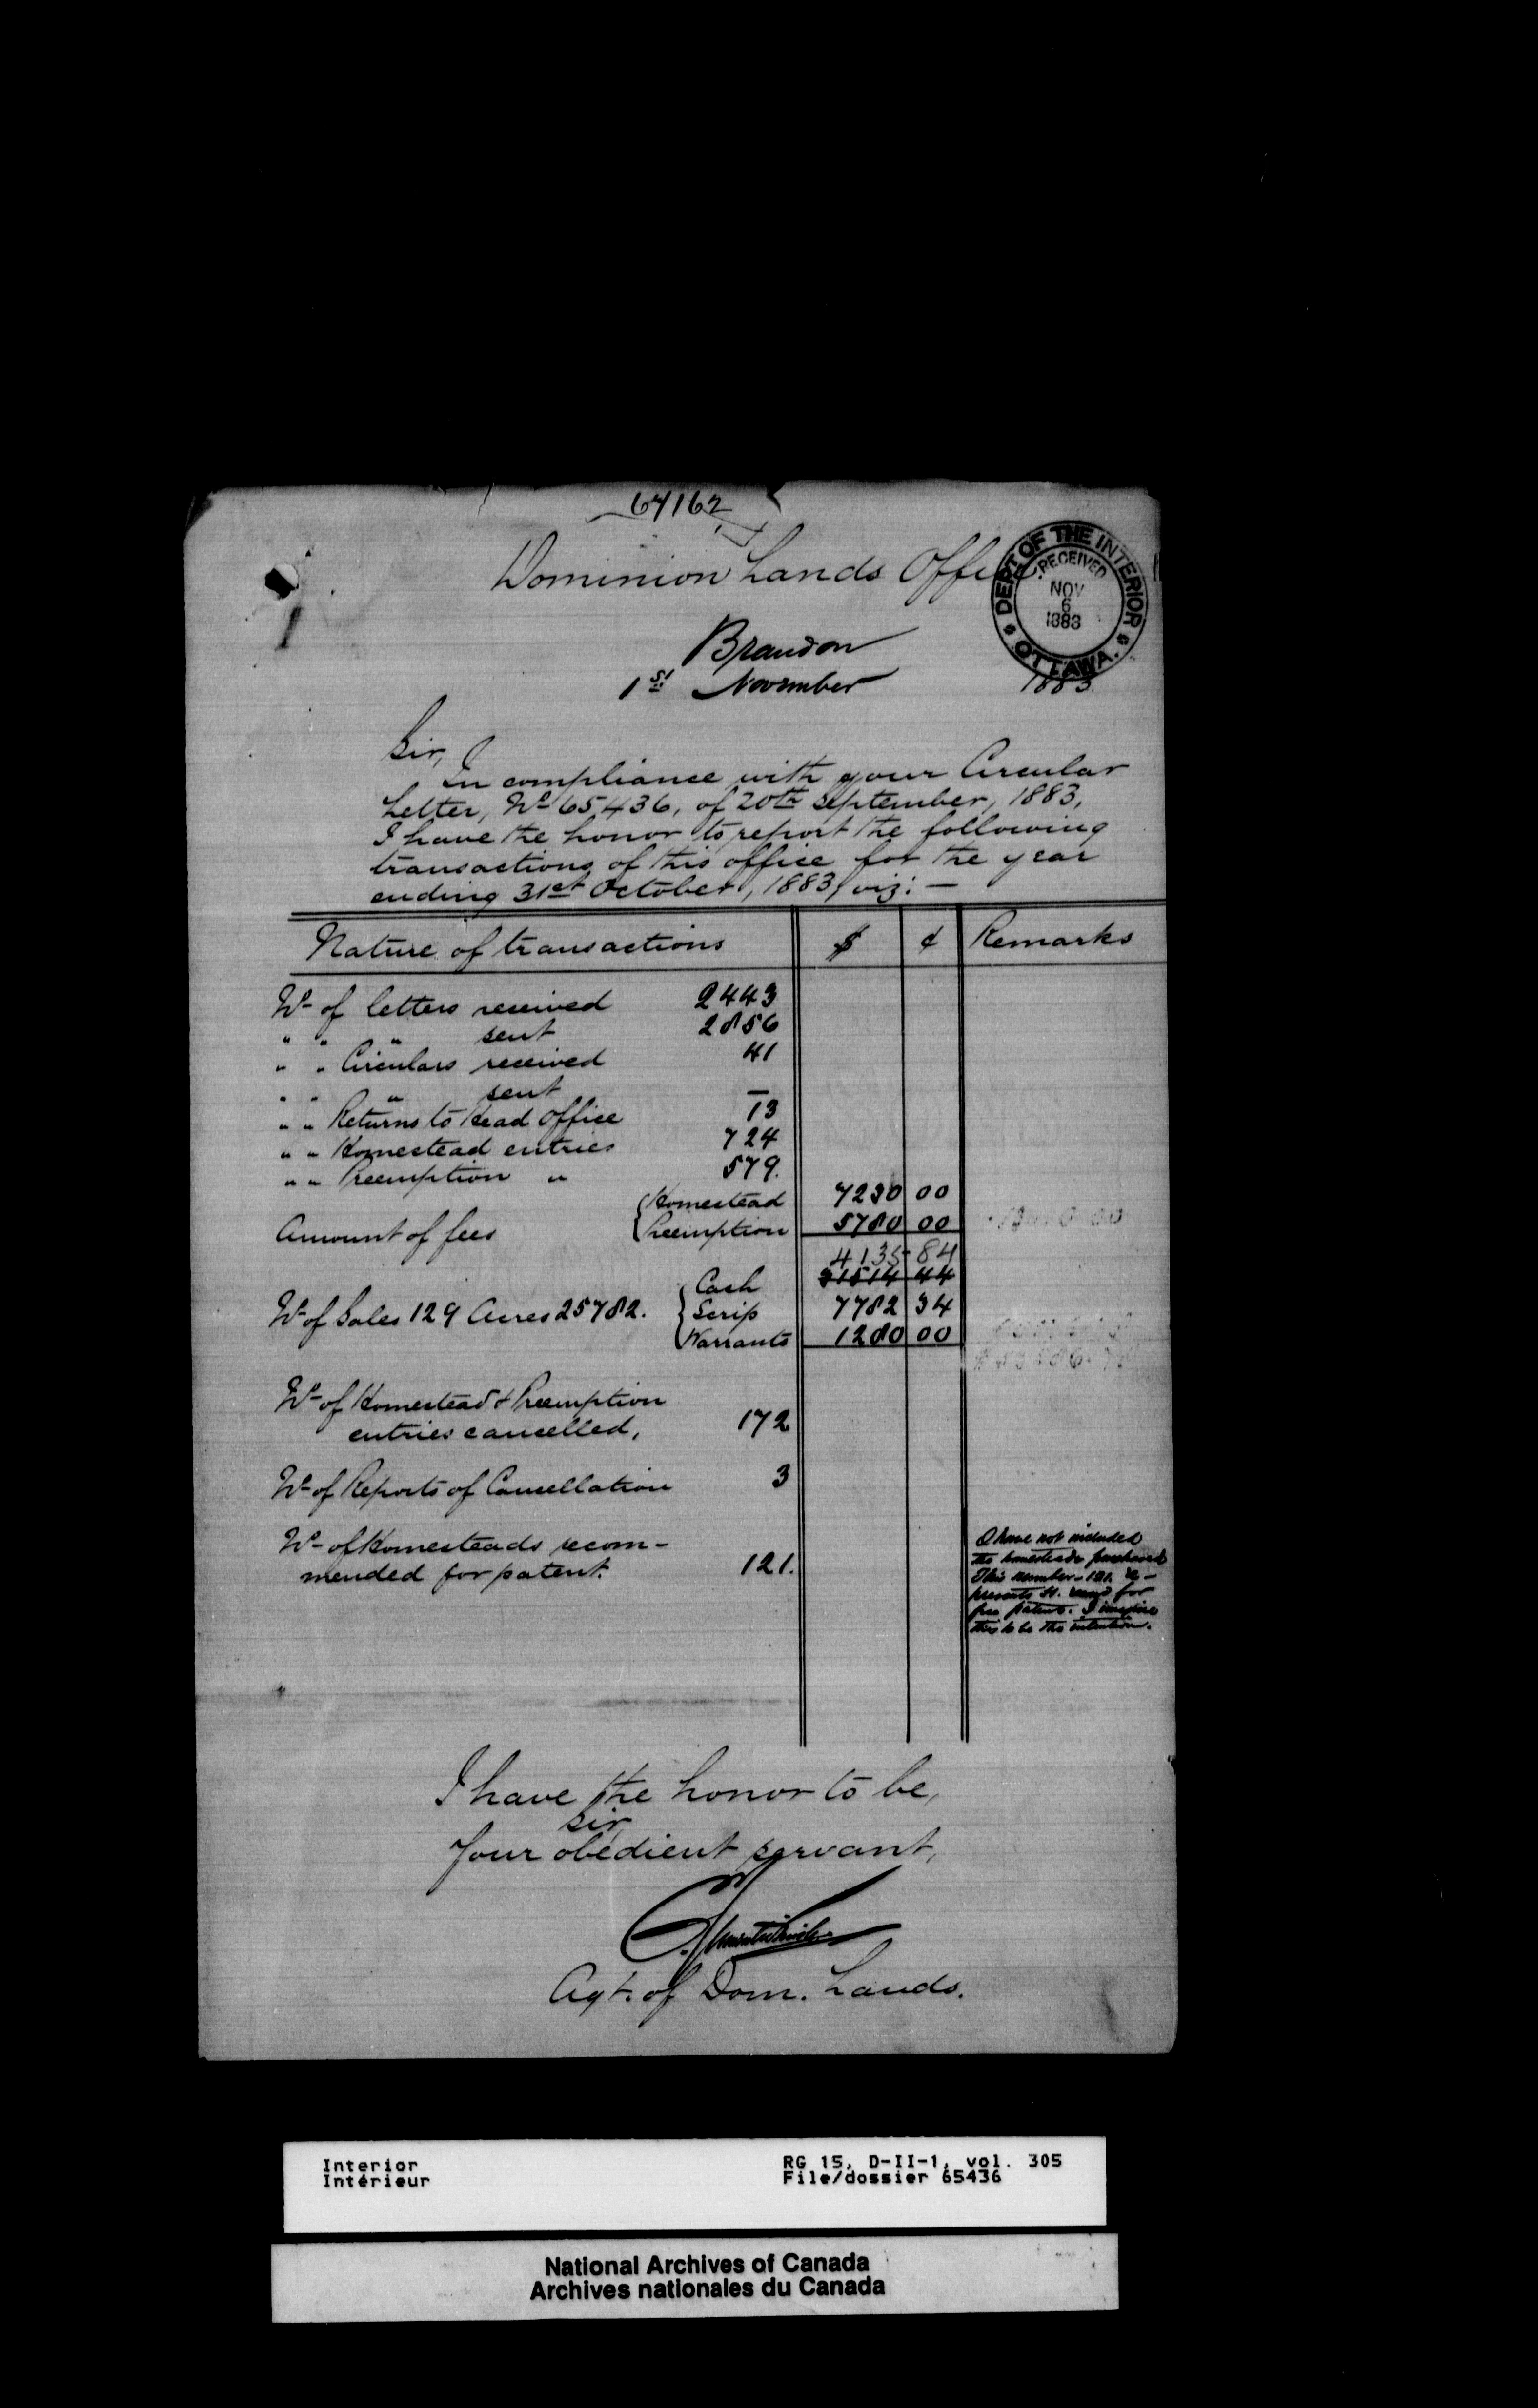 67162
Dominion Lands Office
DEPT OF THE INTERIOR
RECEIVED
NOV
6
1883
OTTAWA.
Brandon
1st November 1883
Sir,
In compliance with your Circular
Letter, No 65436, of 20th September, 1883,
I have the honor to report the following
transactions of this office for the year
ending 31st October, 1883, viz: —
Nature of transactions $ ¢ Remarks
No of letters received 2443
" " " sent 2856
" " Circulars received 41
" " " sent —
" " Returns to Head Office 13
" " Homestead entries 724
" " Preemption " 579.
Homestead 7230 00
Amount of fees Preemption 5780 00
4135 84
Cash 31514 44
No of Sales 129 Acres 25782. Scrip 7782 34
Warrants 1280 00
No of Homestead & Preemption
entries cancelled, 172
No of Reports of Cancellation 3
No of Homesteads recom-
mended for patent. 121.
I have not included
the homesteads purchased
This number - 121. re-
presents H. for
free patent. I imagine
this to be the intention.
I have the honor to be,
Sir,
Your obedient servant,
Agt. of Dom. Lands.
Interior
Intérieur
RG 15, D-II-1, vol. 305
File/dossier 65436
National Archives of Canada
Archives nationales du Canada